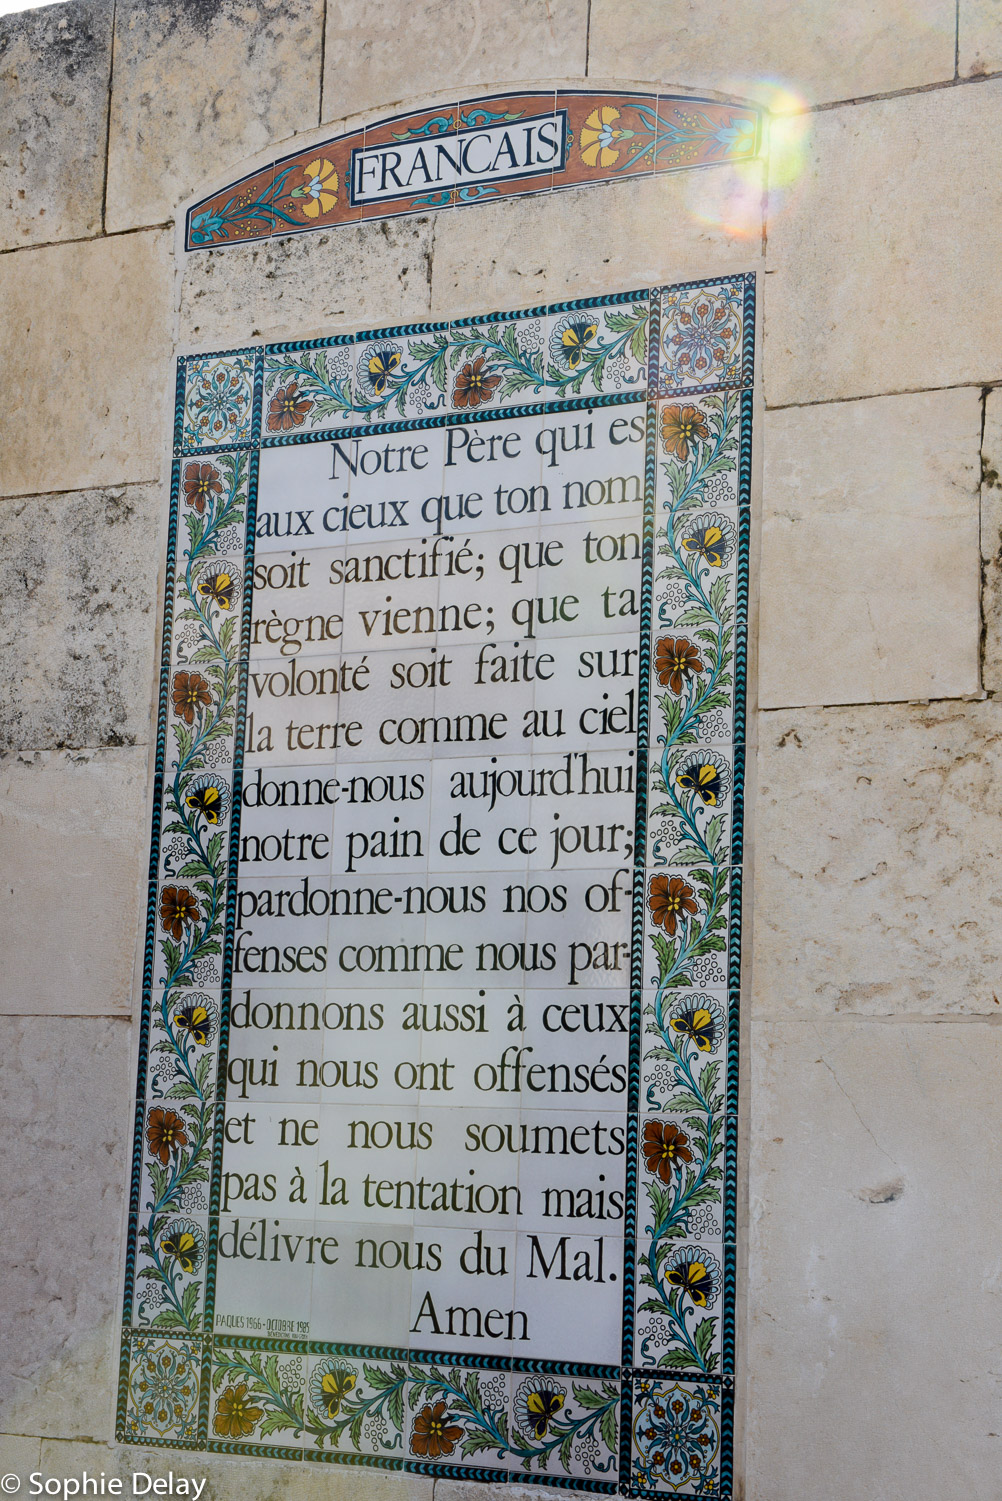 FRANCAIS
Notre Père qui es
aux cieux que ton nom
soit sanctifié; que ton
règne vienne; que ta
volonté soit faite sur
la terre comme au ciel
donne-nous aujourd'hui
notre pain de ce jour;
pardonne-nous nos of-
fenses comme nous par-
donnons aussi à ceux
qui nous ont offensés
et ne nous soumets
pas à la tentation mais
délivre nous du Mal.
Amen
PAQUES 1966 - OCTOBRE 1985
© Sophie Delay